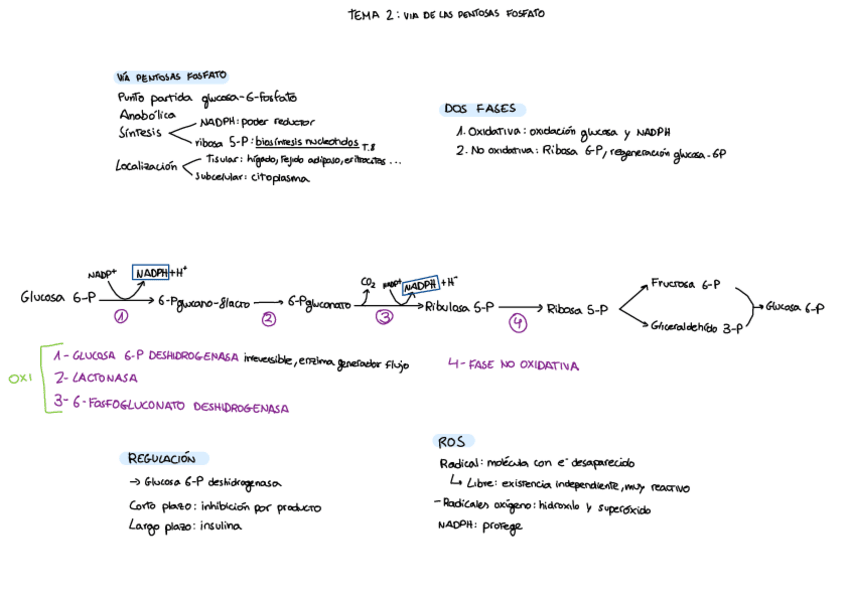 TEMA 2: VIA DE LAS PENTOSAS FOSFATO
VÍA PENTOSAS FOSFATO
Punto partida glucosa-6-fosfato
Anabólica
Síntesis
NADPH: poder reductor
ribosa 5-P: biosíntesis nucleotidos T.8
Localización
Tisular: hígado, tejido adiposo, eritrocitos ...
Subcelular: citoplasma
DOS FASES
1. Oxidativa: oxidación glucosa y NADPH
2. No oxidativa: Ribosa 6-P, regeneración glucosa-6P
NADP+ NADPH+H+
CO2 NADP+ NADPH+H+
Glucosa 6-P 6-Pglucono-δlacto 6-Pgluconato Ribulosa 5-P Ribosa 5-P
Fructosa 6-P
Gliceraldehído 3-P
Glucosa 6-P
1 2 3 4
OXI
1- GLUCOSA 6-P DESHIDROGENASA irreversible, enzima generador flujo
2- LACTONASA
3- 6-FOSFOGLUCONATO DESHIDROGENASA
4- FASE NO OXIDATIVA
REGULACIÓN
→ Glucosa 6-P deshidrogenasa
Corto plazo: inhibición por producto
Largo plazo: insulina
ROS
Radical: molécula con e- desaparecido
Libre: existencia independiente, muy reactivo
- Radicales oxígeno: hidroxilo y superóxido
NADPH: protege